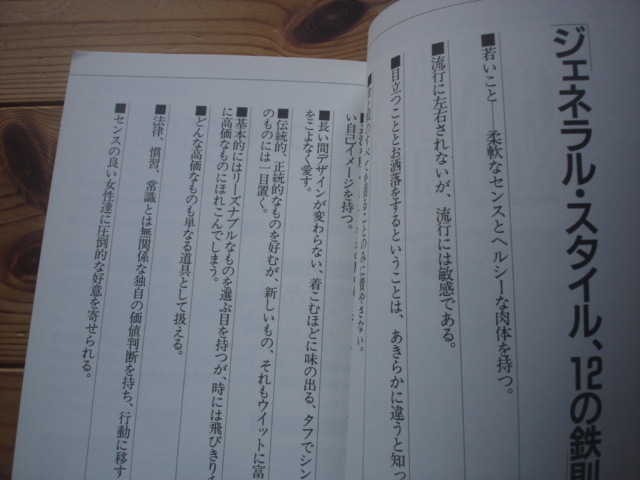 ジェネラル・スタイル、12の鉄則
■若いこと——柔軟なセンスとヘルシーな肉体を持つ。
■流行に左右されないが、流行には敏感である。
■目立つこととお洒落をするということは、あきらかに違うと知っ
ることのみに費やさない。
い自己イメージを持つ。
■長い間デザインが変わらない、着こむほどに味の出る、タフでシン
をこよなく愛す。
■伝統的、正統的なものを好むが、新しいもの、それもウイットに富
のものには一目置く。
■基本的にはリーズナブルなものを選ぶ目を持つが、時には飛びきり
に高価なものにほれこんでしまう。
■どんな高価なものも単なる道具として扱える。
■法律、慣習、常識とは無関係な独自の価値判断を持ち、行動に移す
■センスの良い女性達に圧倒的な好意を寄せられる。